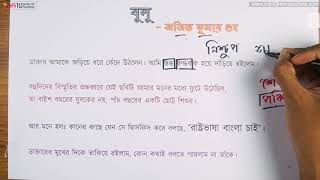 বুলু
- অজিত কুমার গুহ
নিশ্চুপ
ডাক্তার আমাকে জড়িয়ে ধরে কেঁদে উঠলেন। আমি স্তব্ধ রুদ্ধবাক হয়ে দাঁড়িয়ে রইলাম।
বহুদিনের বিস্মৃতির অন্ধকারে যেই ছবিটি আমার মনের মধ্যে ফুটে উঠেছিল,
তা বাইশ বছরের যুবকের নয়, পাঁচ বছরের একটি ছোট্ট শিশুর।
আর মনে হলঃ কানের কাছে যেন সে ফিসফিস করে বলছে, "রাষ্ট্রভাষা বাংলা চাই"।
ডাক্তারের মুখের দিকে তাকিয়ে রইলাম, কোন কথাই বলতে পারলাম না তাঁকে।